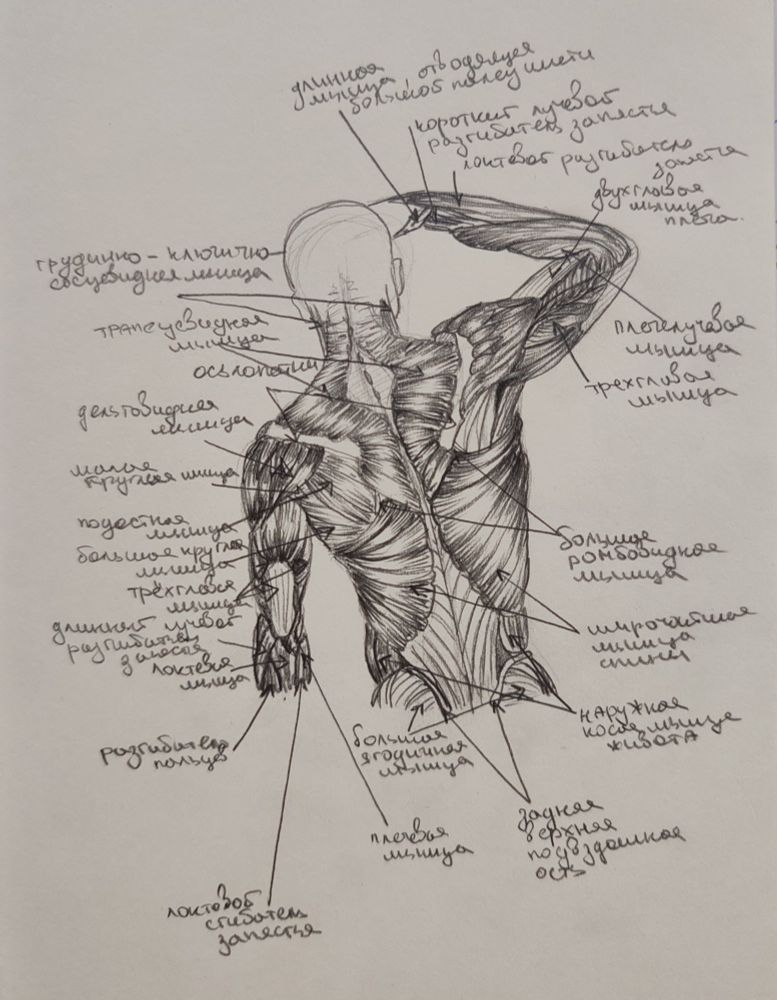 длинная
мышца, отводящая
большой палец кисти
короткий лучевой
разгибатель запястья
локтевой разгибатель
запястья
двухглавая
мышца
плеча.
грудинно-ключично
сосцевидная мышца
трапециевидная
мышца
ось лопатки
дельтовидная
мышца
малая
круглая мышца
подостная
мышца
большая круглая
мышца
трёхглавая
мышца
длинный лучевой
разгибатель
запястья
локтевая
мышца
разгибатель
пальцев
локтевой
сгибатель
запястья
плечелучевая
мышца
трехглавая
мышца
большая
ромбовидная
мышца
широчайшая
мышца
спины
наружная
косая мышца
живота
большая
ягодичная
мышца
плечевая
мышца
задняя
верхняя
подвздошная
ость